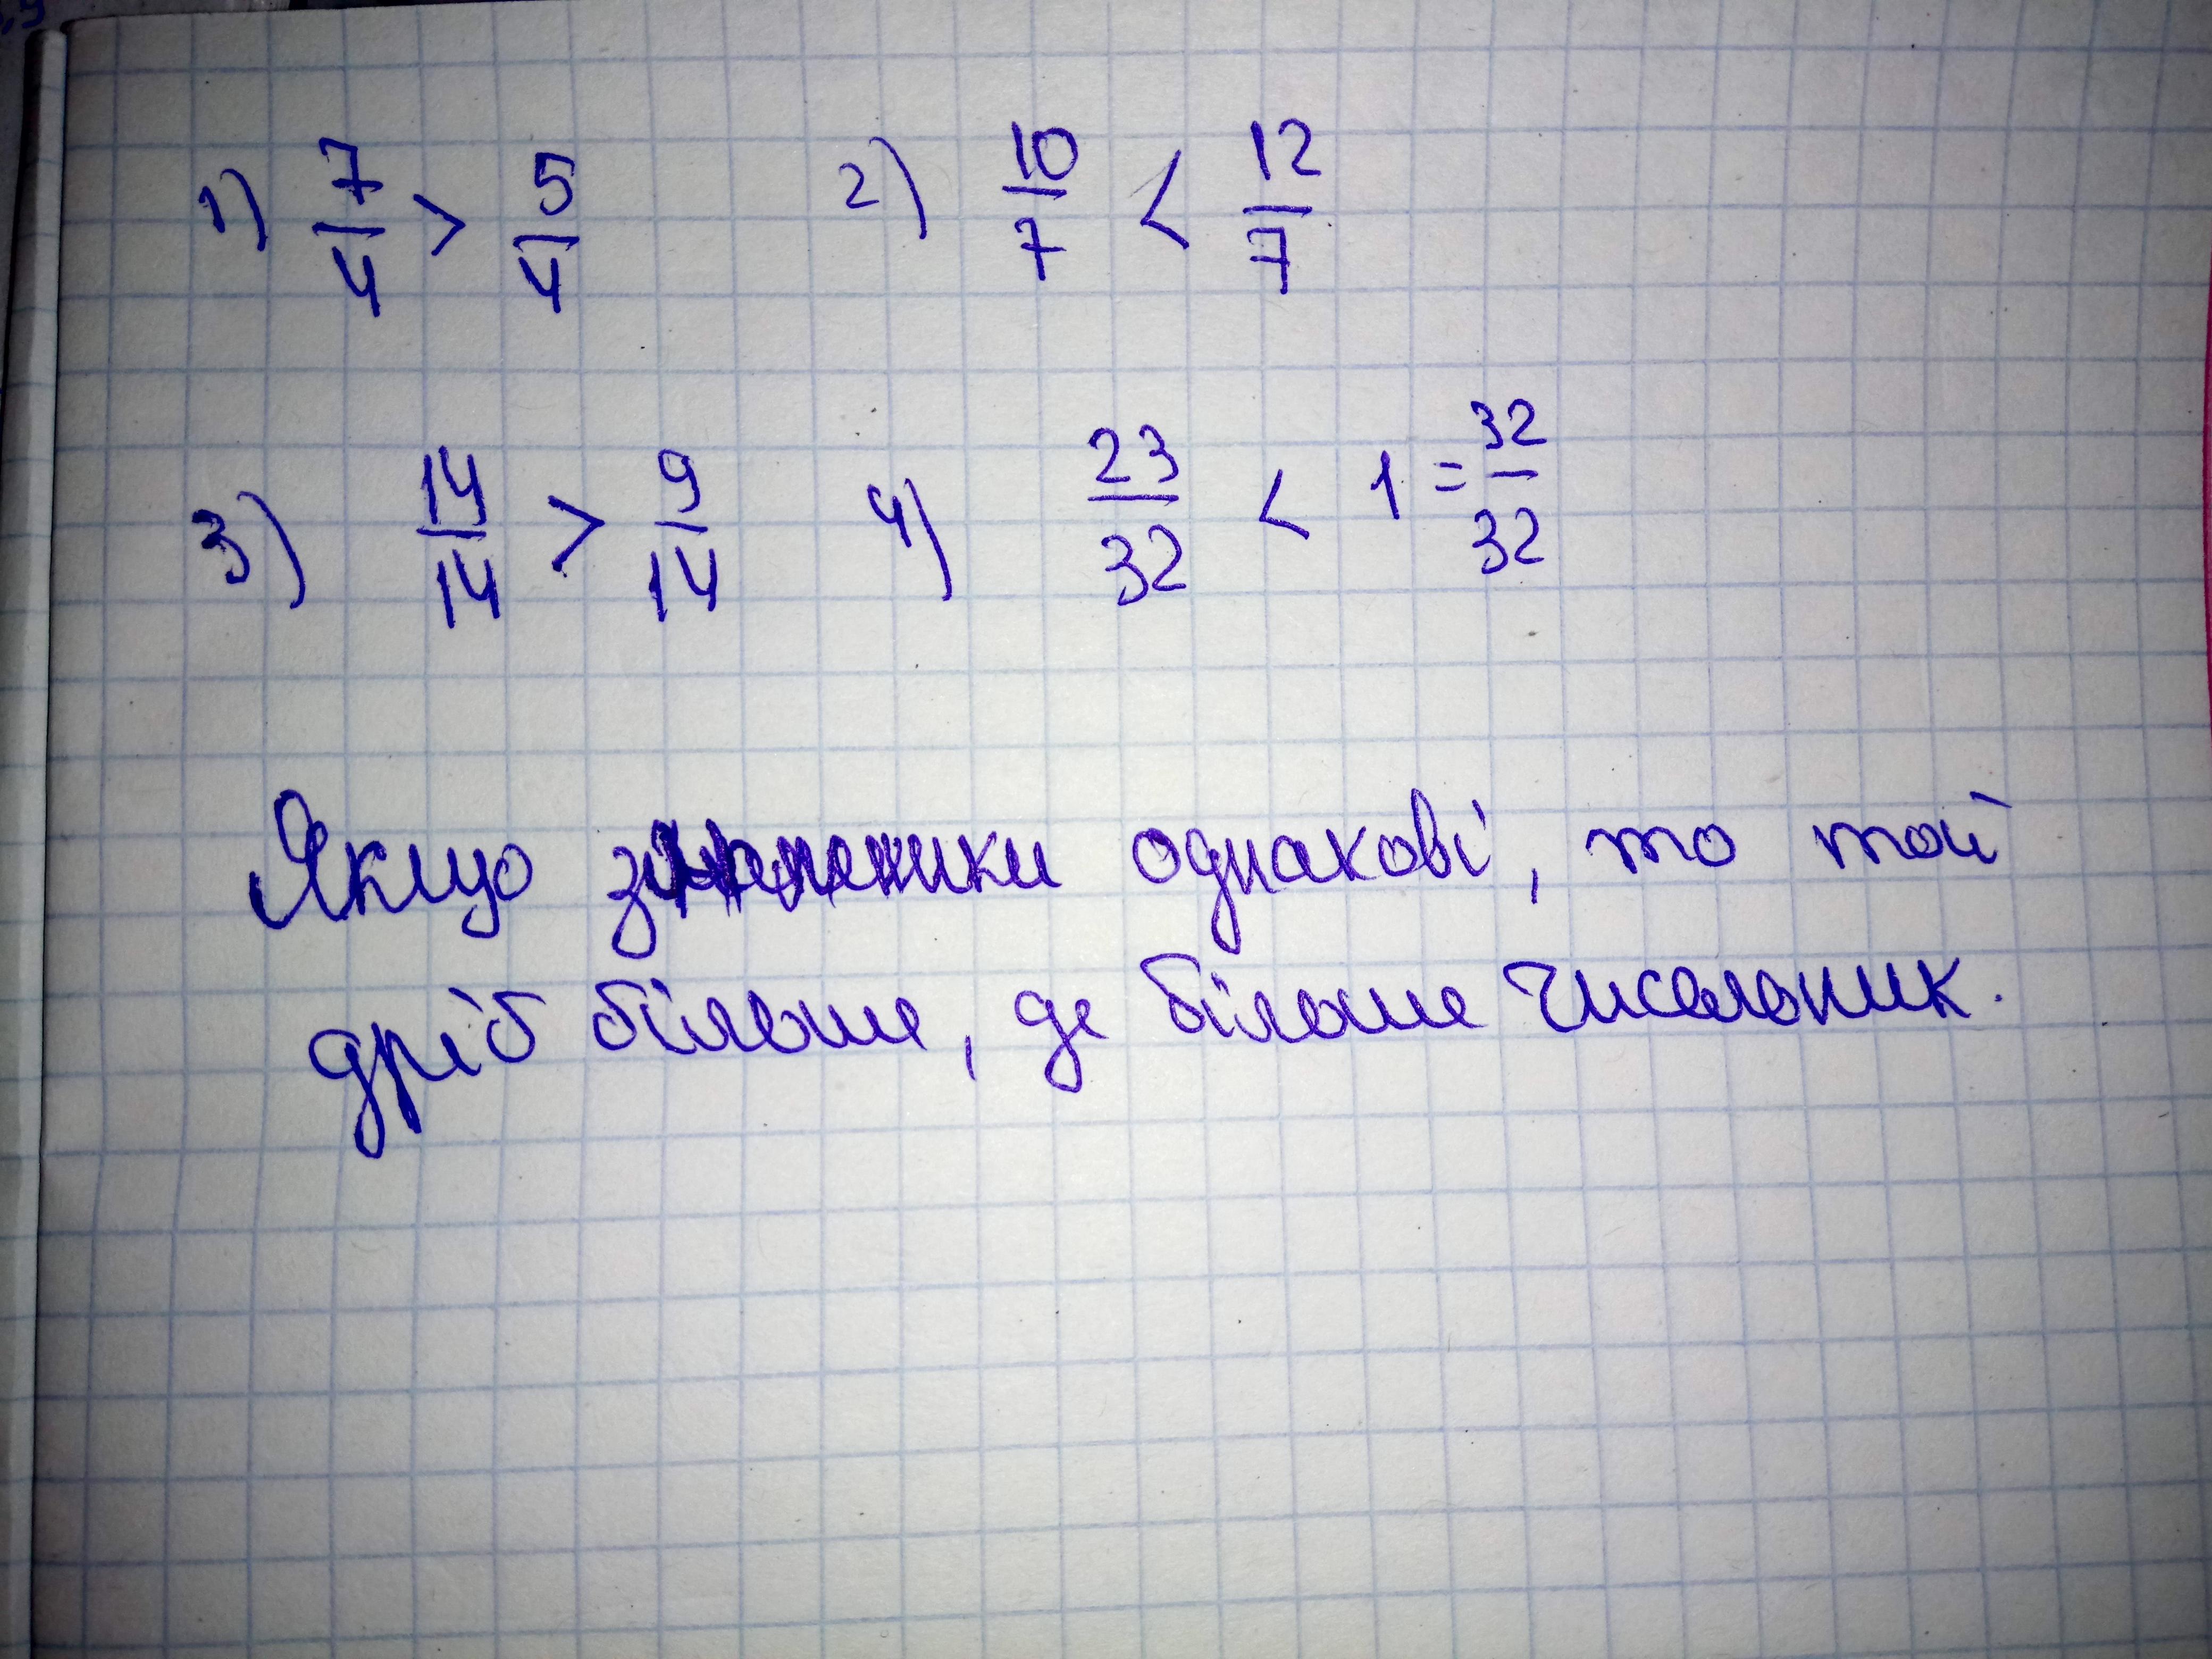 1) 7/4 > 5/4 2) 10/7 < 12/7
3) 14/14 > 9/14 4) 23/32 < 1 = 32/32
Якщо знаменники однакові, то той
дріб більше, де більше чисельник.